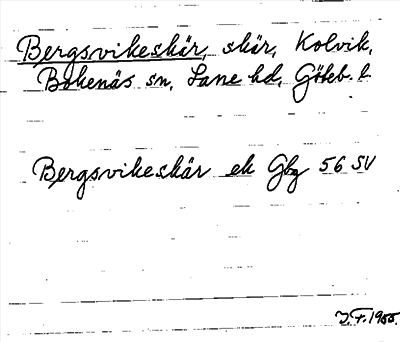 Bergsvikeskär, skär, Kolvik,
Bokenäs sn, Lane hd, Göteb. l.
Bergsvikeskär ek Gbg 56 SV
J.F. 1955.